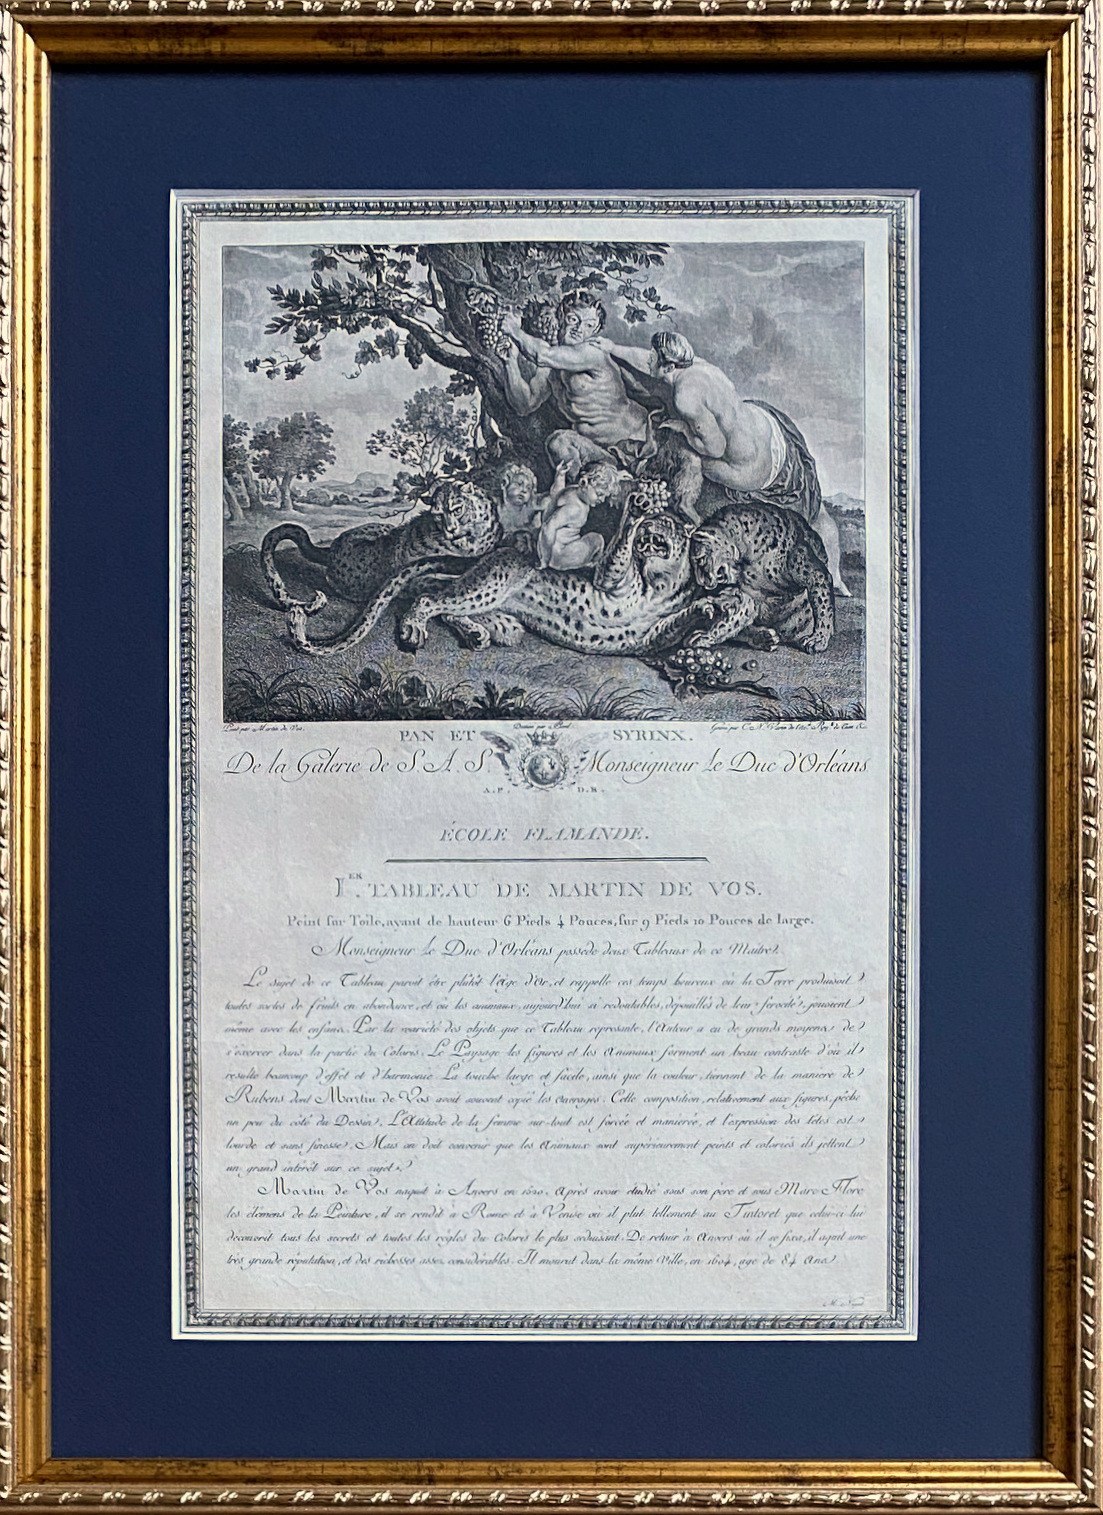 Peint par Martin de Vos.
Dessiné par Borel
Gravé par
PAN ET SYRINX.
De la Galerie de S. A. S. Monseigneur le Duc d'Orléans
A. P. D. R.
ÉCOLE FLAMANDE.
I.ER TABLEAU DE MARTIN DE VOS.
Peint sur Toile, ayant de hauteur 6 Pieds 4 Pouces, sur 9 Pieds 10 Pouces de large.
Monseigneur le Duc d'Orléans possède deux Tableaux de ce Maitre.
Le sujet de ce Tableau paroit être plûtôt l'Âge d'Or, et rappelle ces temps heureux où la Terre produisoit
toutes sortes de fruits en abondance, et où les animaux, aujourd'hui si redoutables, dépouillés de leur férocité, jouoient
même avec les enfans. Par la varieté des objets que ce Tableau représente, l'Auteur a eu de grands moyens de
s'exercer dans la partie du Coloris. Le Paysage les figures et les Animaux forment un beau contraste d'où il
resulte beaucoup d'effet et d'harmonie. La touche large et facile, ainsi que la couleur, tiennent de la maniere de
Rubens dont Martin de Vos avoit souvent copié les ouvrages. Cette composition, relativement aux figures, pèche
un peu du coté du Dessin. L'Attitude de la femme sur-tout est forcée et manierée, et l'expression des têtes est
lourde et sans finesse. Mais on doit convenir que les Animaux sont supérieurement peints et coloriés ils jettent
un grand intérêt sur ce sujet.
Martin de Vos naquit à Anvers en 1520. Après avoir étudié sous son père et sous Marc Flore
les élémens de la Peinture, il se rendit à Rome et à Venise où il plut tellement au Tintoret que celui-ci lui
découvrit tous les secrets et toutes les règles du Coloris le plus séduisant. De retour à Anvers où il se fixa, il aquit une
très grande réputation, et des richesses assez considérables. Il mourut dans la même Ville, en 1604, agé de 84 Ans.